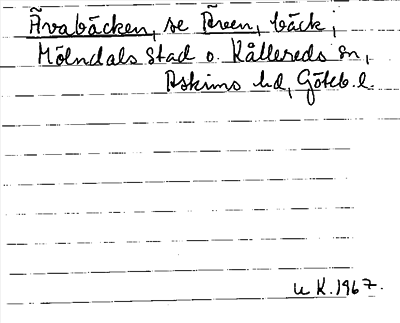 Ãvabäcken, se Ãven, bäck,
Mölndals stad o. Kållereds sn,
Askims hd, Göteb. l.
U K. 1967.